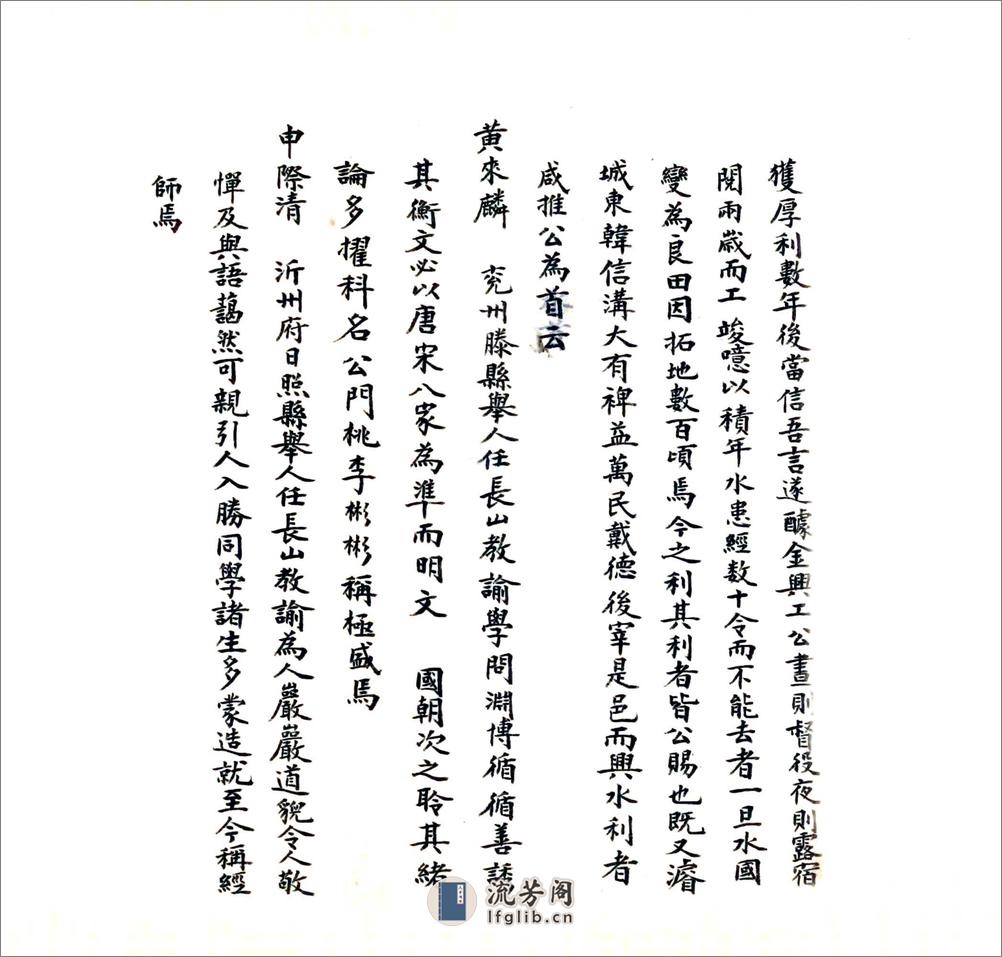 獲厚利數年後當信吾言遂醵金興工公晝則督役夜則露宿
閱兩歲而工竣噫以積年水患經数十令而不能去者一旦水國
變為良田因拓地數百頃焉今之利其利者皆公賜也既又濬
城東韓信溝大有裨益萬民戴德後宰是邑而興水利者
咸推公為首云
黄來麟 兖州滕縣舉人任長山教諭學問淵博循循善誘
其衡文必以唐宋八家為準而明文 國朝次之聆其緒
論多擢科名公門桃李彬彬稱極盛焉
申際清 沂州府日照縣舉人任長山教諭為人嚴嚴道貌令人敬
憚及與語藹然可親引人入勝同學諸生多蒙造就至今稱經
師焉
流芳阁
lfglib.cn